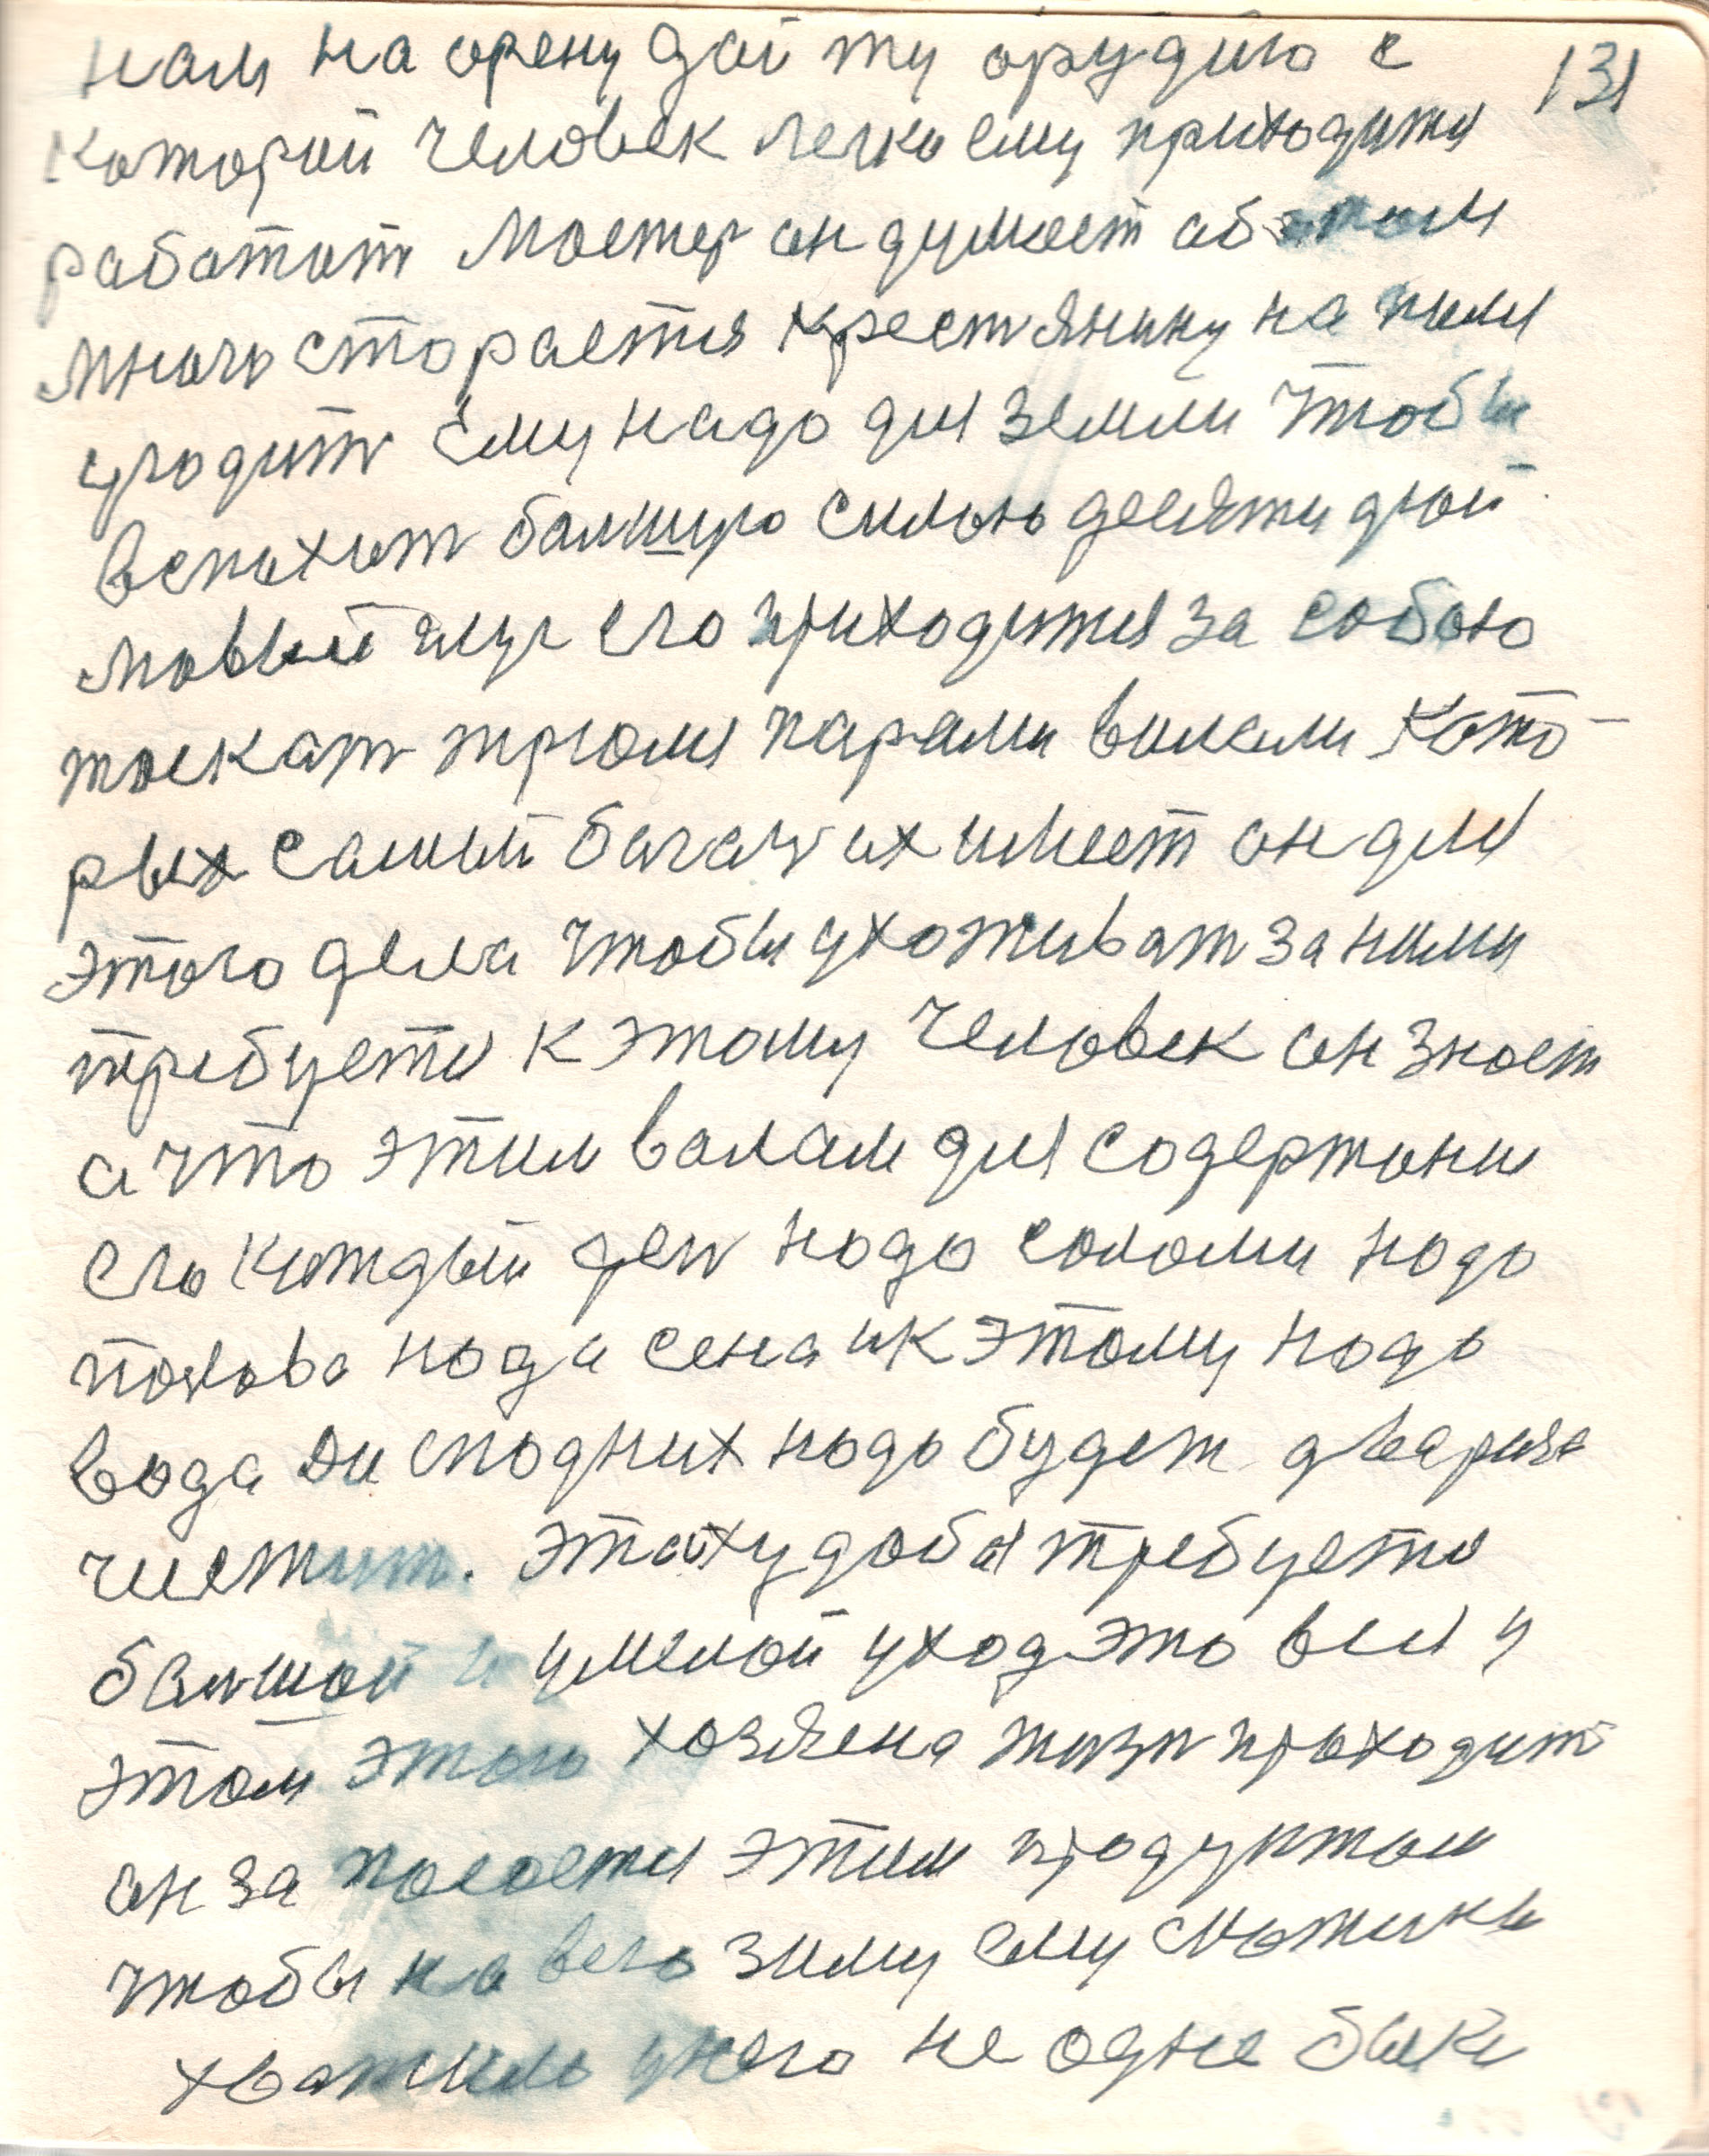 нам на орену дай ту орудию с
131
которой человек легко ему приходится
работат Мастер он думает об этом
много старается Крестянину на ниеми
угодить ему надо для земли чтобы
вспахат балшую силою десяти дюй
мовый плуг его приходится за собою
таскат трюмя парами вилами кото-
рых самый багач их имеет он для
этого дела чтобы ухоживат за ними
требуется к этому человек он знает
а что этим валам для содержани
его каждый ден надо соломи надо
полова нада сена и к этому надо
вода да и сподних надо будет двариза
чистит. Эта худоба требуется
балшой и умелой уход это вся у
этом этого хозяена жизн проходит
он за посается этим продуктом
чтобы на всю зиму ему скотины
хватило у него не одне быки